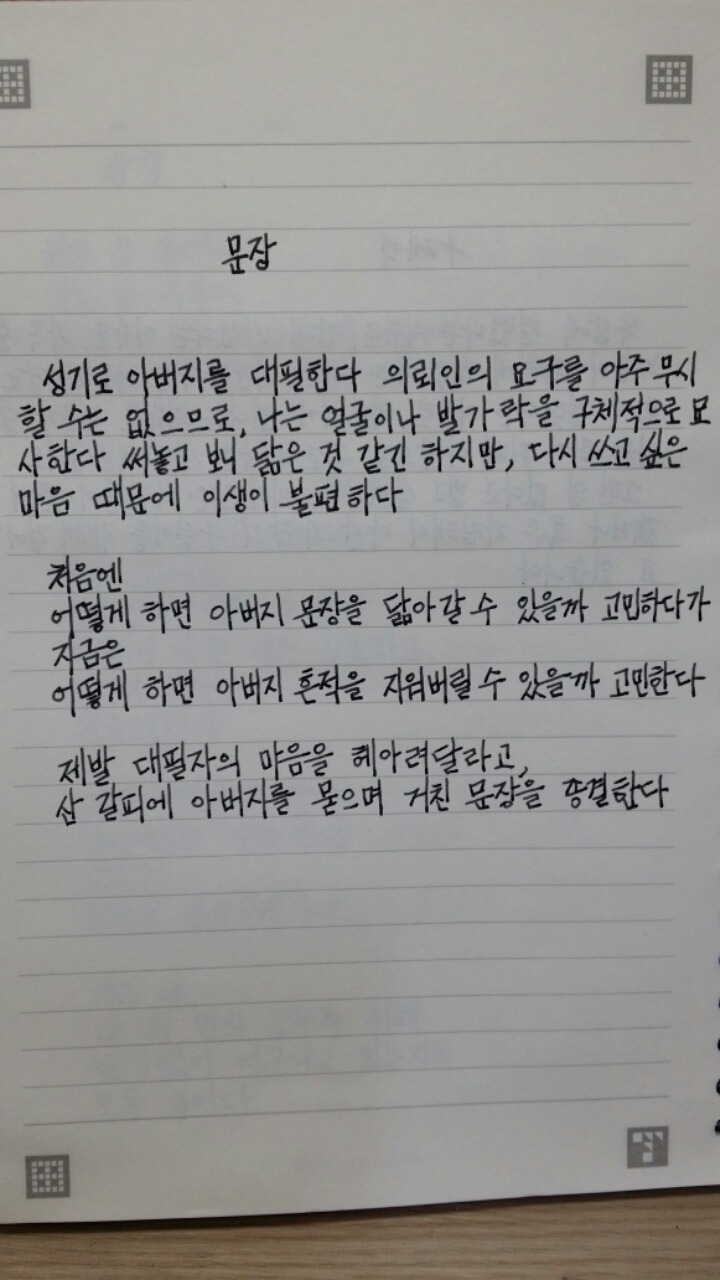 문장
성기로 아버지를 대필한다 의뢰인의 요구를 아주 무시
할 수는 없으므로, 나는 얼굴이나 발가락을 구체적으로 묘
사한다 써놓고 보니 닮은 것 같긴 하지만, 다시 쓰고 싶은
마음 때문에 이생이 불편하다
처음엔
어떻게 하면 아버지 문장을 닮아갈 수 있을까 고민하다가
지금은
어떻게 하면 아버지 흔적을 지워버릴 수 있을까 고민한다
제발 대필자의 마음을 헤아려달라고,
샅 갈피에 아버지를 묻으며 거친 문장을 종결한다